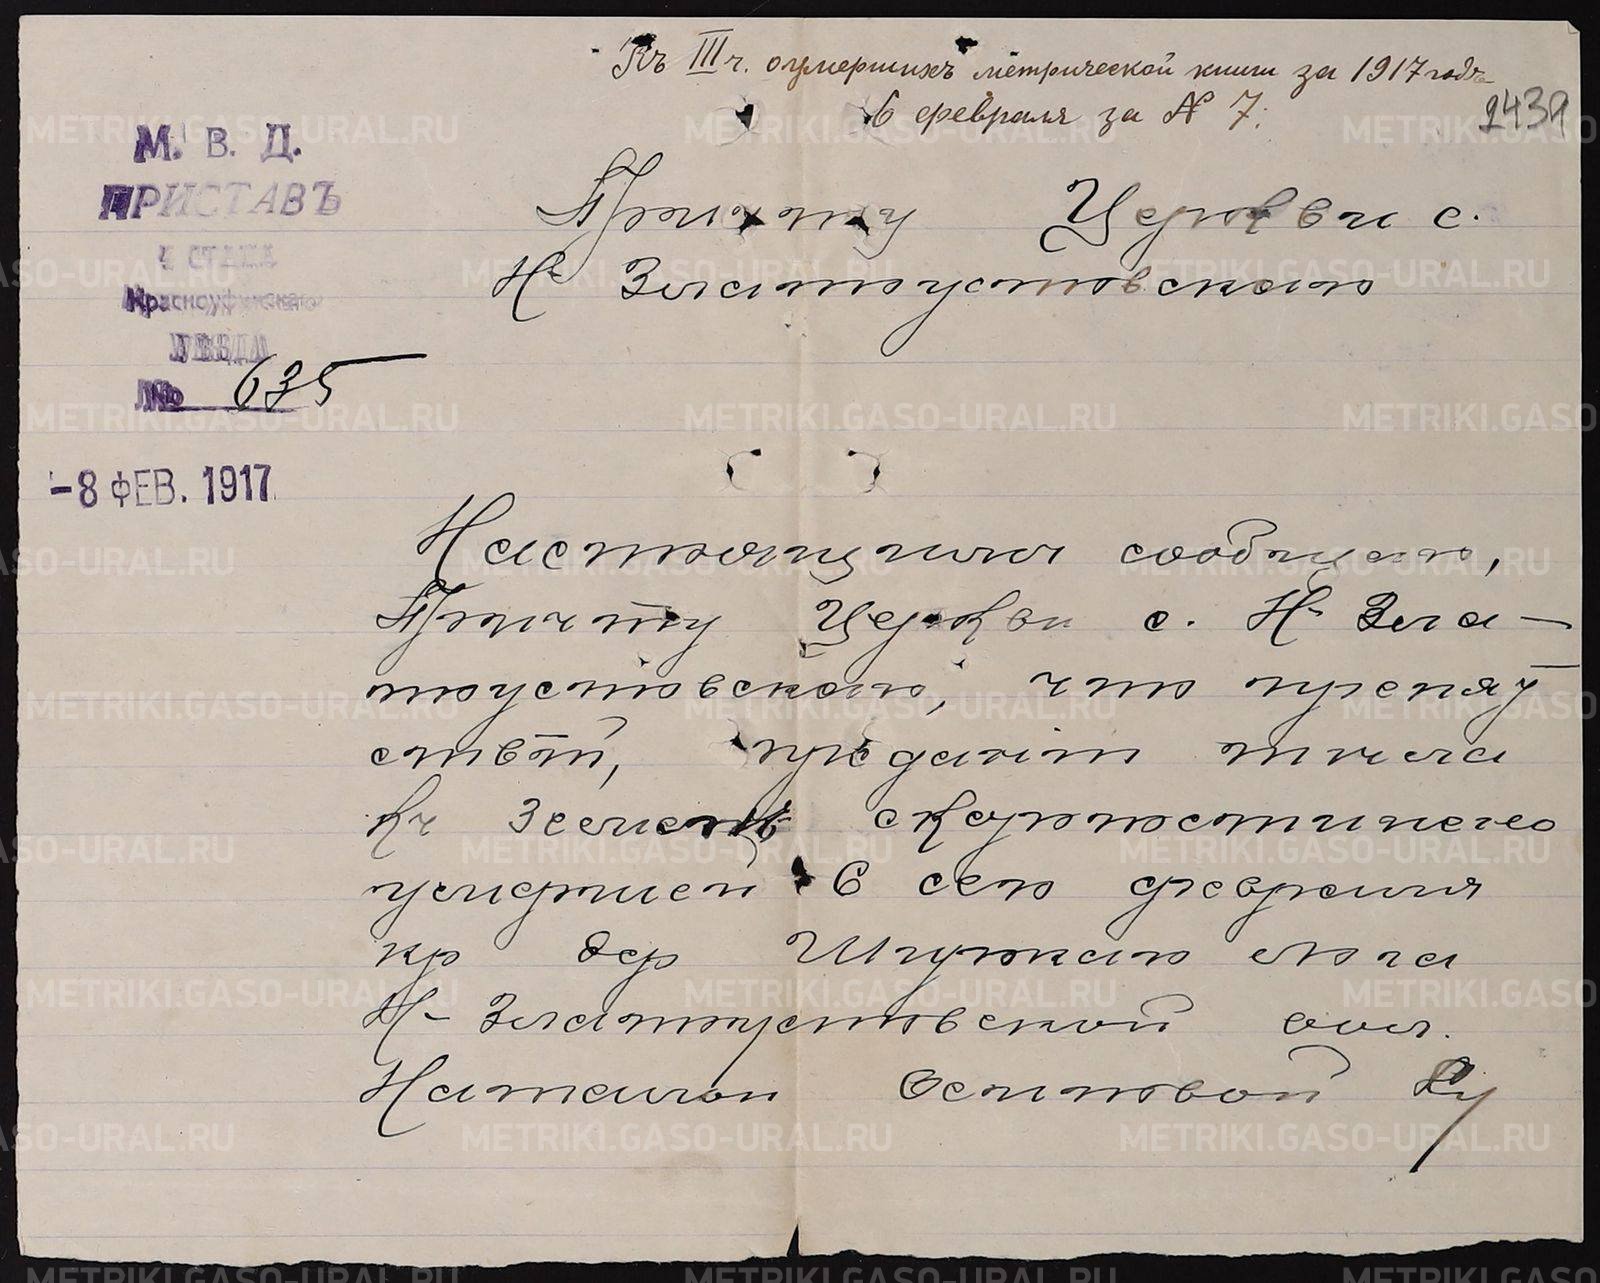 Къ III ч. о умершихъ метрической книги за 1917 годъ
6 февраля за № 7.
2439
М. В. Д.
ПРИСТАВЪ
4 СТАНА
Красноуфимскаго
УѢЗДА
№ 635
-8 ФЕВ. 1917
Причту Церкви с.
Н- Златоустовскаго
Настоящимъ сообщаю,
Причту Церкви с. Н- Зла-
тоустовскаго, что препят
ствій, преданію тѣла
къ землѣ скоропостижно
умершей 6 сего февраля
кр дер Шуркаю Лога
Н- Златоустовской вол.
Наталіи Осиповой